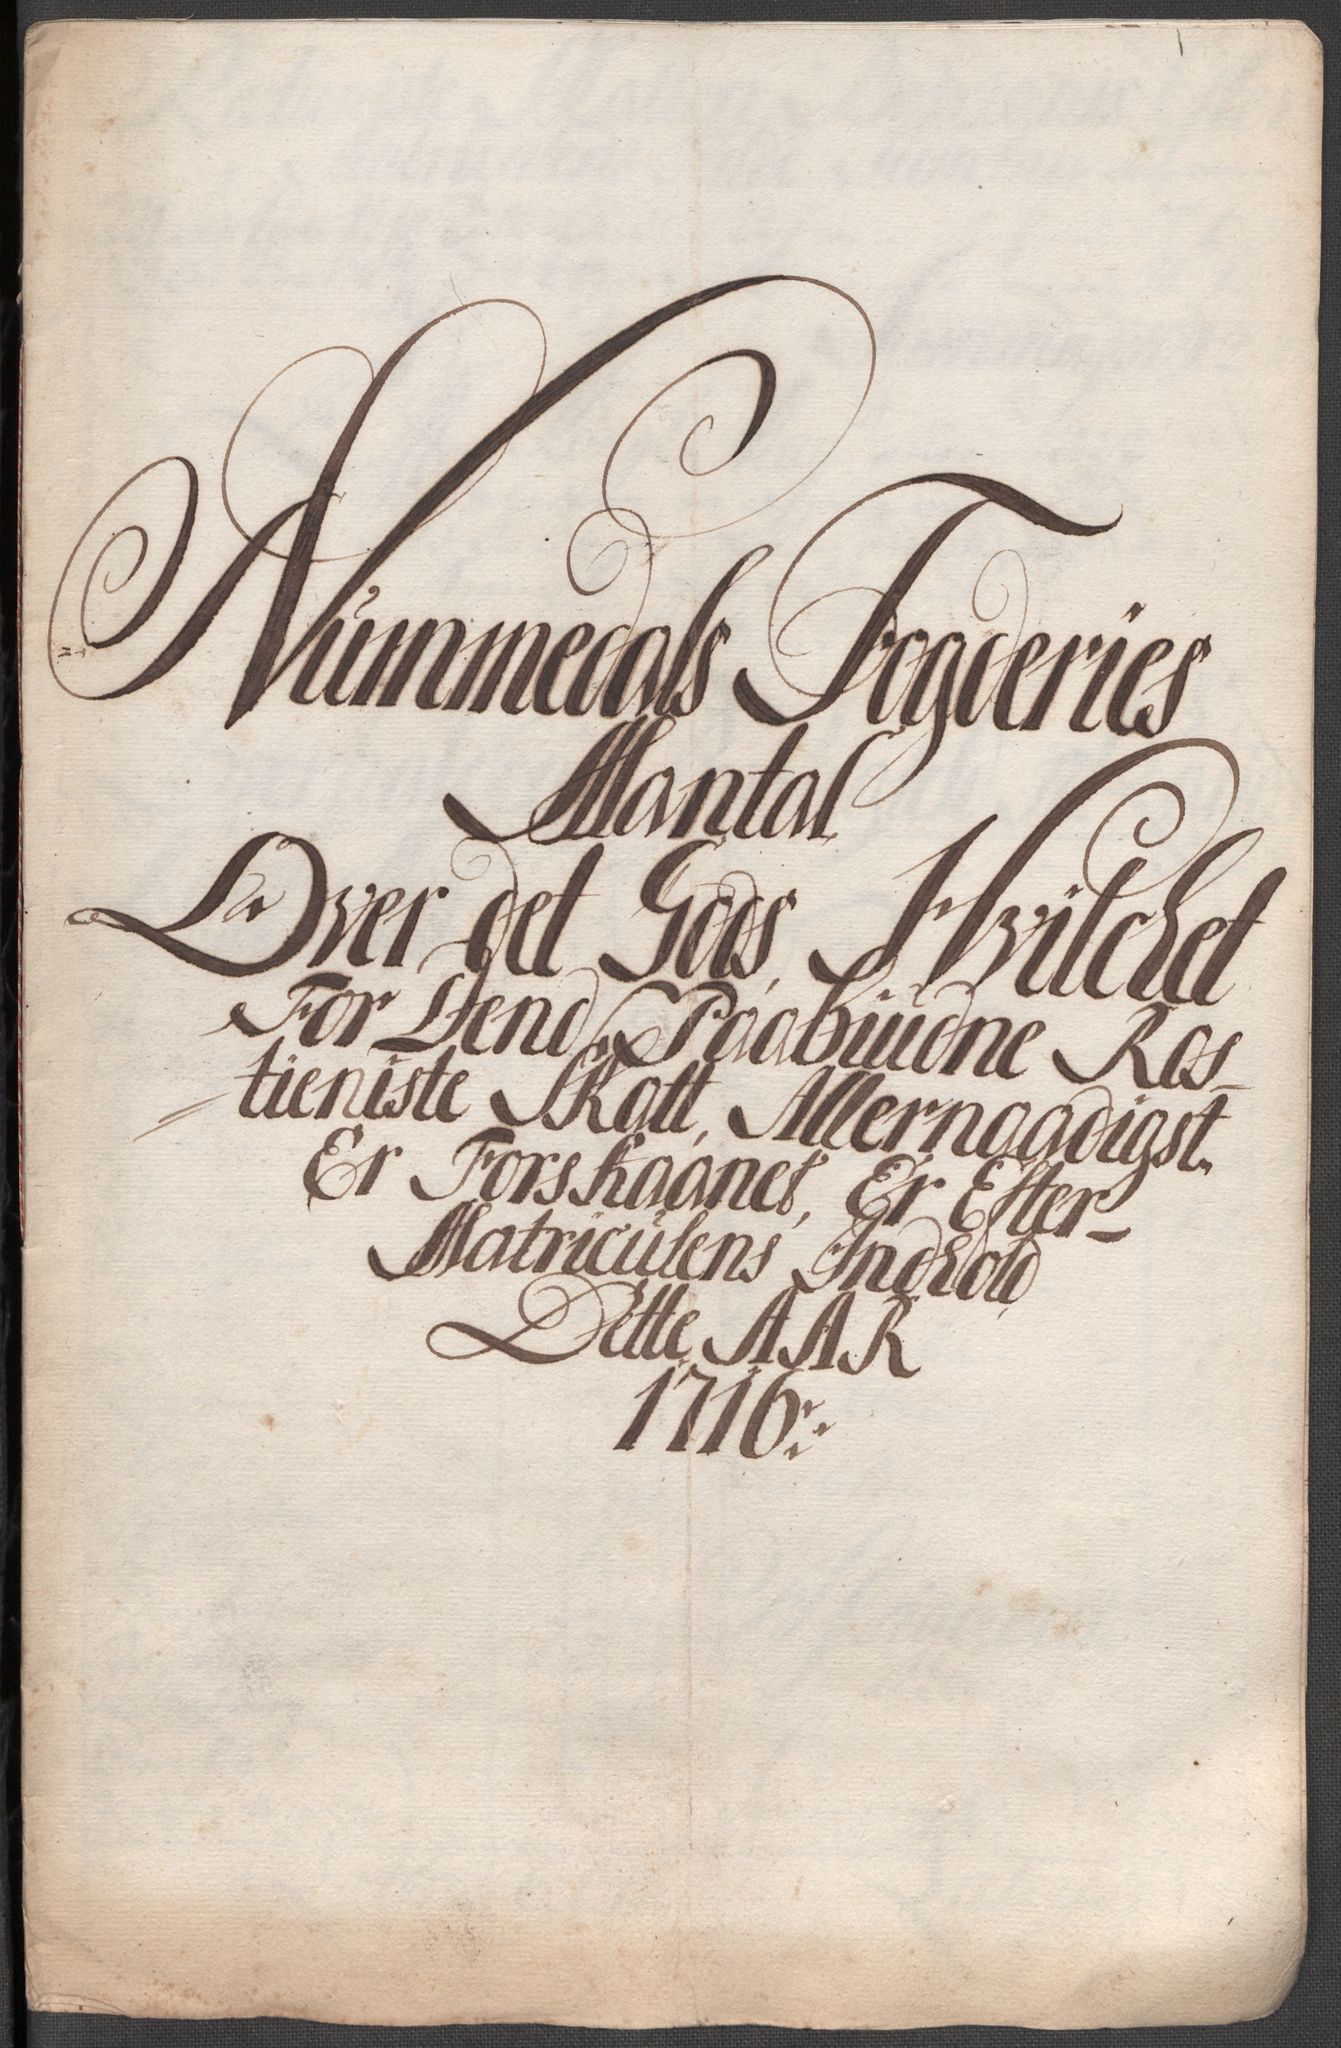 Nümmedals Fogderies
Mantal
Over det Gods, Hvilchet
For Dend Paabüdne Ros-
tieniste Skatt, Allernaadigst.
Er Forskaanet, Er Efter-
Matriculens Indhold,
Dette AAR
1716: